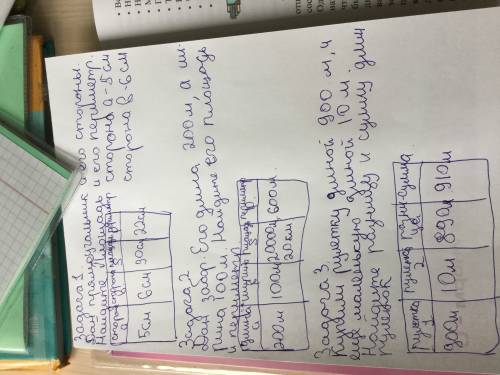 Задача 1
Дан прямоугольник и его стороны.
Найдите площадь и его периметр.
сторона a - 5 см
сторона в - 6 см
сторона a | сторона в | площадь S | периметр
5см | 6см | 30см | 22см
Задача 2
Дан забор. Его длина 200м, а ши-
рина 100м. Найдите его площадь
и периметр.
длина a | ширина в | площадь S | периметр
200м | 100м | 20 км | 600м.
Задача 3
Купили рулетку длиной 900 м, и
ещё маленькую длиной 10 м.
Найдите разницу и сумму длин
рулеток
рулетка 1 | рулетка 2 | разница | сумма
900м | 10м | 890м | 910м